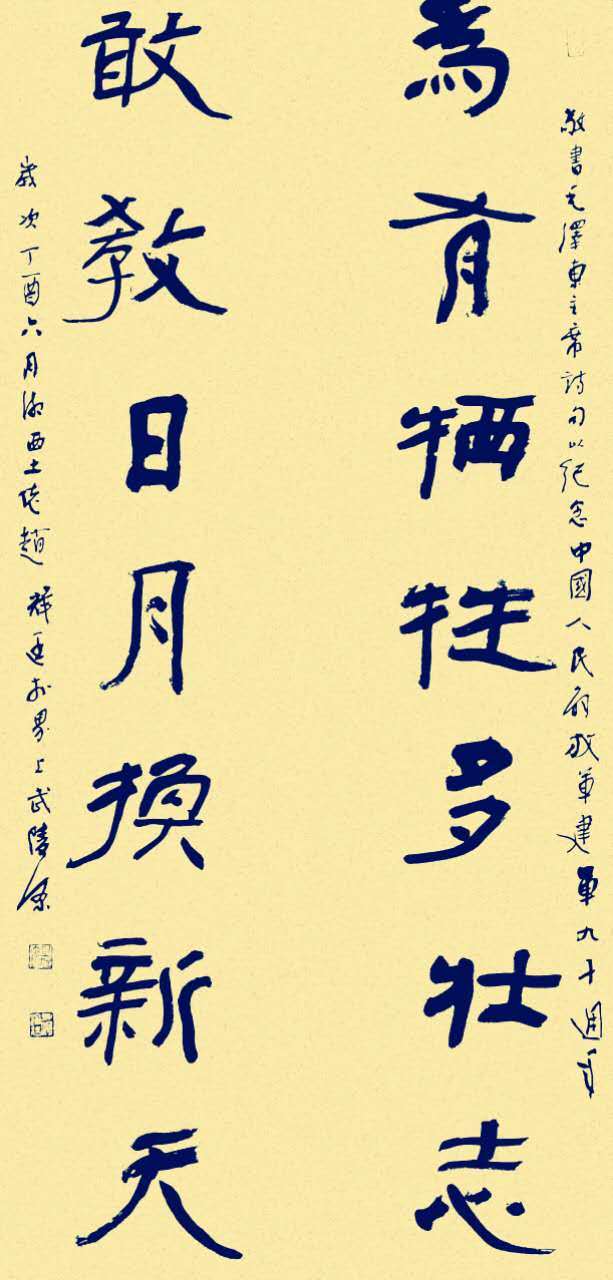 敬書毛澤東主席詩句以紀念中國人民解放軍建軍九十週年
為有牺牲多壮志
敢教日月換新天
歲次丁酉六月湘西土佬趙輝廷於界上武陵源